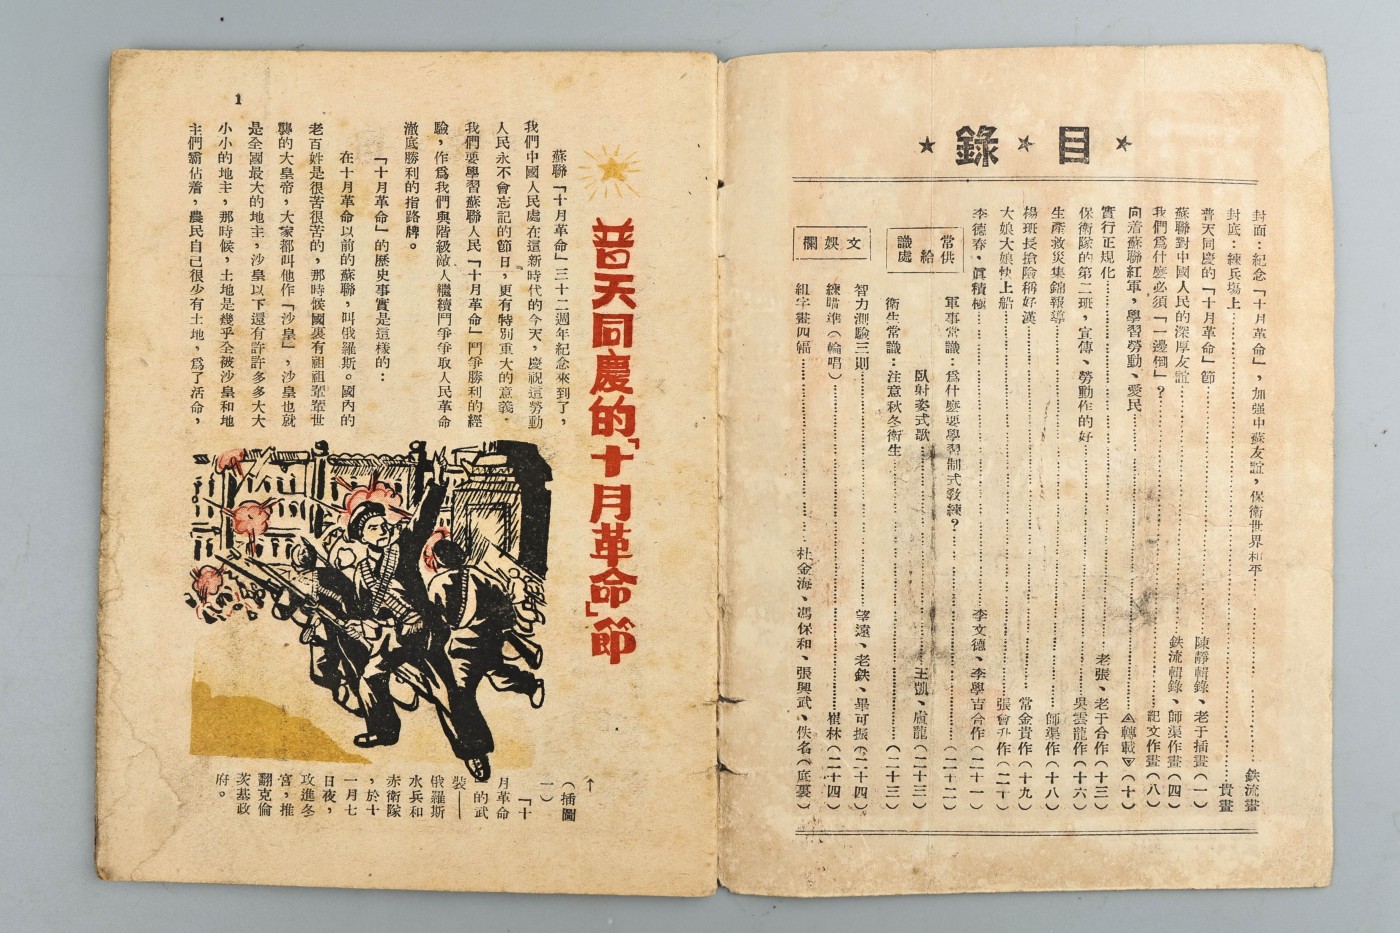 ★目★錄★
封面：紀念「十月革命」，加强中蘇友誼，保衛世界和平……鉄流畫
封底：練兵場上……貴畫
普天同慶的「十月革命」節……陳靜輯錄、老于插畫（一）
蘇聯對中國人民的深厚友誼……鉄流輯錄、師渠作畫（四）
我們爲什麽必須「一邊倒」？……紀文作畫（八）
向着蘇聯紅軍，學習勞動、愛民……轉載（十）
實行正規化……老張、老于合作（十三）
保衛隊的第二班，宣傳、勞動作的好……吳雲龍作（十六）
生產救災集錦報導……師渠作（十八）
楊班長搶險稱好漢……常金貴作（十九）
大娘大娘快上船……張會升作（二十）
李德春、眞積極……李文德、李學吉合作（二十一）
常識供給處
軍事常識：爲什麽要學習制式敎練？……（二十二）
臥射姿式歌……王凱、盧龍（二十三）
衛生常識：注意秋冬衛生……（二十三）
文娛欄
智力測驗三則……望遠、老鉄、畢可振（二十四）
練瞄準（輪唱）……崔林（二十四）
組字畫四幅……杜金海、馮保和、張興武、佚名（底裏）
普天同慶的「十月革命」節
蘇聯「十月革命」三十二週年紀念來到了，
我們中國人民處在這新時代的今天，慶祝這勞動
人民永不會忘記的節日，更有特別重大的意義。
我們要學習蘇聯人民「十月革命」鬥爭勝利的經
驗，作爲我們與階級敵人繼續鬥爭爭取人民革命
澈底勝利的指路牌。
「十月革命」的歷史事實是這樣的：
在十月革命以前的蘇聯，叫俄羅斯。國內的
老百姓是很苦很苦的，那時候國裏有祖祖輩輩世
襲的大皇帝，大家都叫他作「沙皇」，沙皇也就
是全國最大的地主，沙皇以下還有許許多多大大
小小的地主，那時候，土地是幾乎全被沙皇和地
主們霸佔着，農民自己很少有土地，爲了活命，
↑
（插圖
一）
「十
月革命
」的武
裝——
俄羅斯
水兵和
赤衛隊
，於十
一月七
日夜，
攻進冬
宮，推
翻克倫
茨基政
府。
1